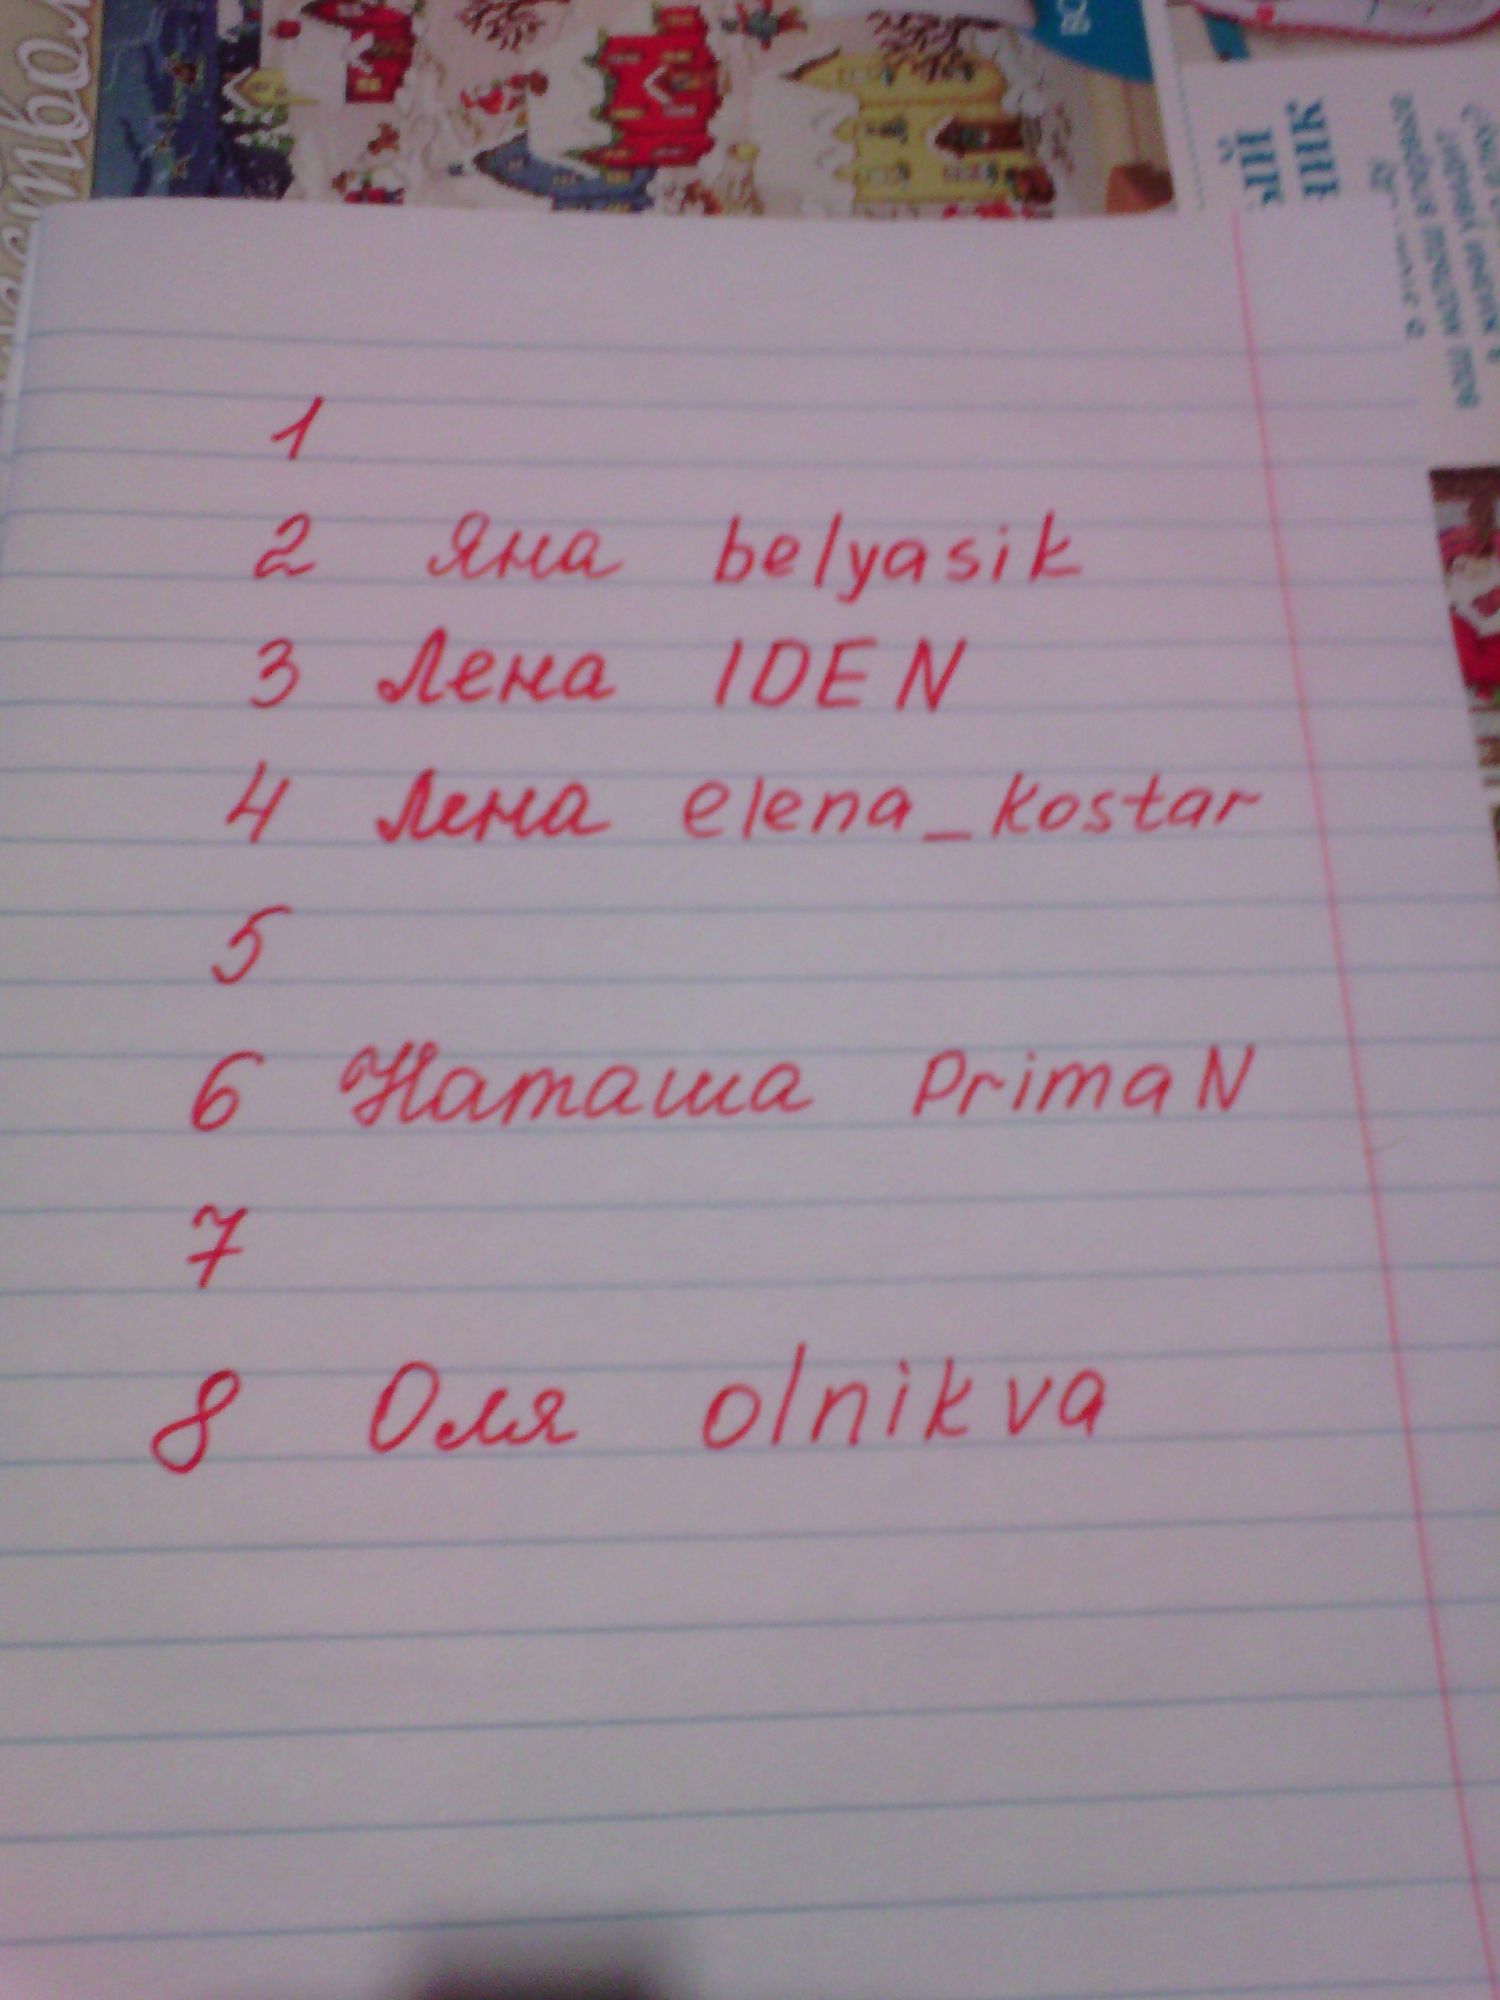 ый
шик
1
2 Яна belyasik
3 Лена IDEN
4 Лена elena_kostar
5
6 Наташа PrimaN
7
8 Оля olnikva